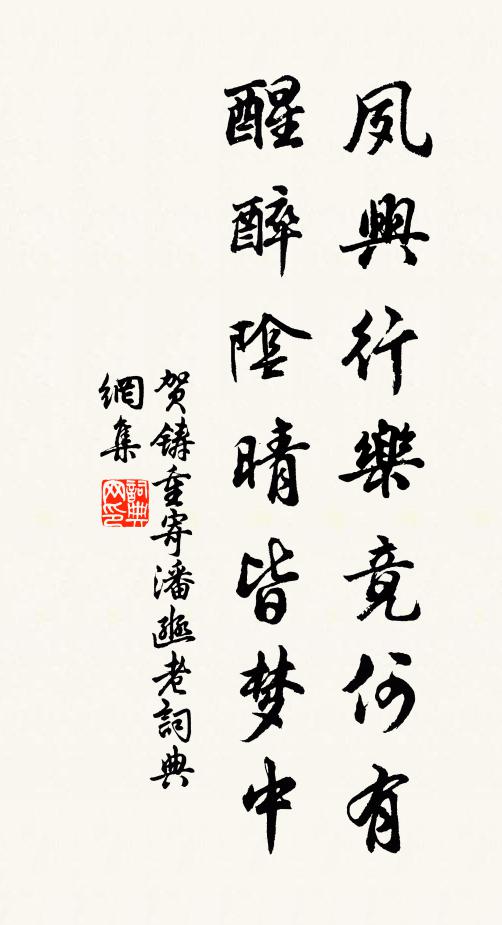 夙興行樂竟何有
醒醉陰晴皆梦中
贺鑄重寄潘邠老詞典
網集
詞典网印